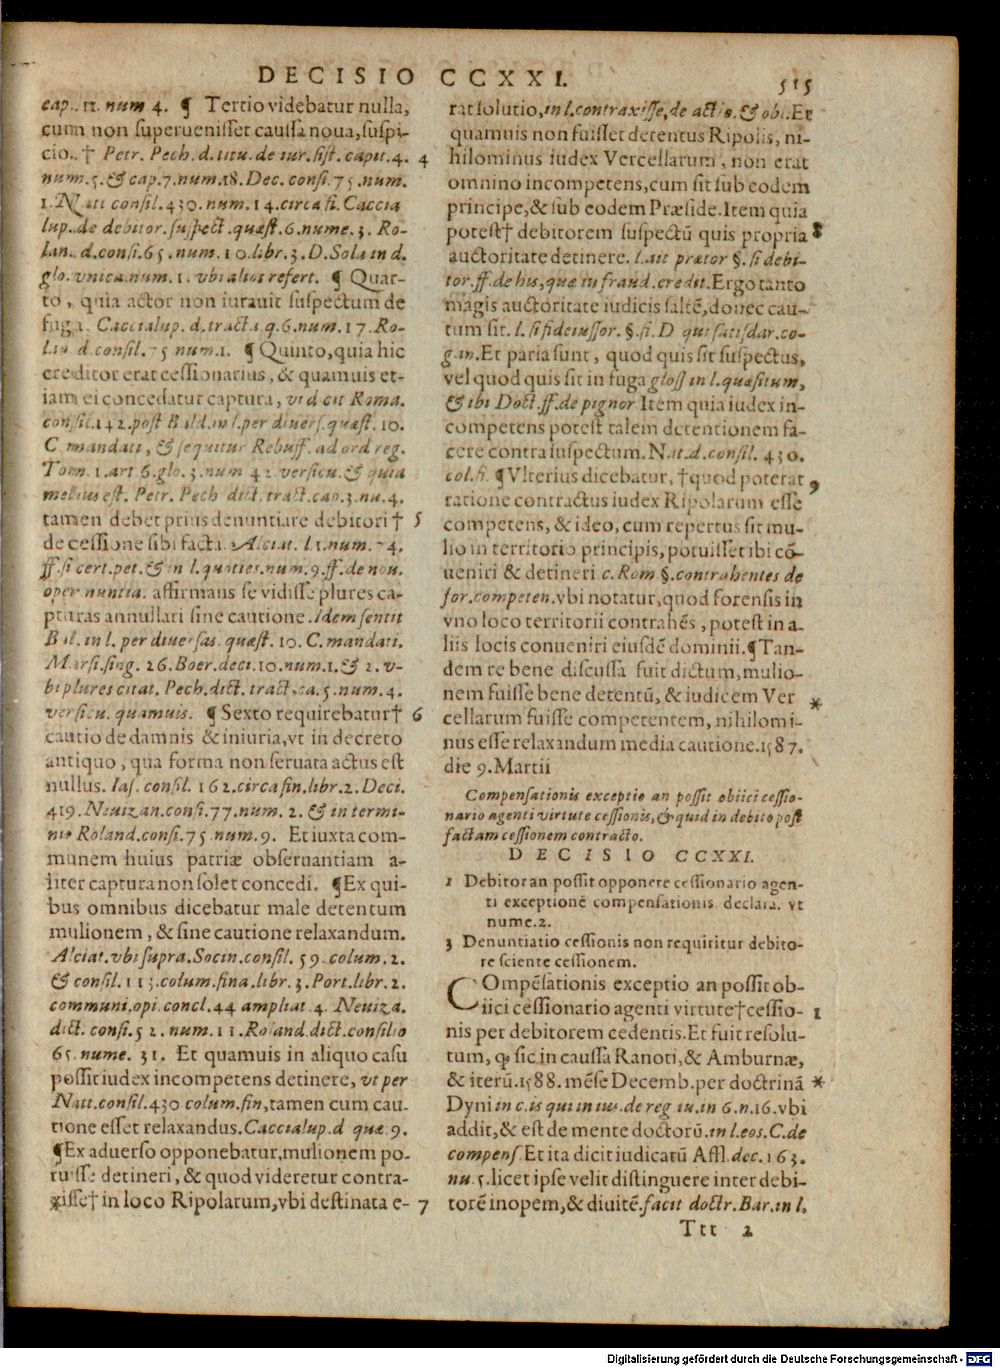 DECISIO CCXXI. 515
cap.. 11. num 4. ¶ Tertio videbatur nulla,
cum non superuenisset caussa noua, suspi-
cio.. † Petr. Pech. d. titu. de iur. sist. capit. 4. 4
num. 5. & cap. 7. num. 18. Dec. consi. 75. num.
1. Nati consil. 430. num. 14. circa fi. Caccia
lup.. de debitor. suspect. quæst. 6. nume. 3. Ro-
lan.. d. consi. 65. num. 10. libr. 3. D. Sola in d.
glo. vnica. num. 1. vbi alios refert. ¶ Quar-
to, quia actor non iurauit suspectum de
fuga. Caccialup. d. tracta. q. 6. num. 17. Ro-
lan d. consil. 75 num. 1. ¶ Quinto, quia hic
creditor erat cessionarius, & quamuis et-
iam ei concedatur captura, vt d cit Roma.
consil. 142. post Bald. in l. per diuers. quæst. 10.
C mandati, & sequitur Rebuff. ad ord reg.
Tom. 1. art 6. glo. 3. num 42. versicu. & quia
melius est. Petr. Pech dict. tract. cap. 3. nu. 4.
tamen debet prius denuntiare debitori † 5
de cessione sibi facta. Alciat. l 1. num. 4.
ff. si cert. pet. & in l. quoties. num. 9. ff. de nou.
oper nuntia. affirmans se vidisse plures ca-
pturas annullari sine cautione. Idem sentit
Bal. in l. per diuersas. quæst. 10. C. mandati.
Marsi. sing. 26. Boer. deci. 10. num. 1. & 2. v-
bi plures citat. Pech. dict. tract. ca. 5. num. 4.
versicu. quamuis. ¶ Sexto requirebatur † 6
cautio de damnis & iniuria, vt in decreto
antiquo, qua forma non seruata actus est
nullus. Ias. consil. 162. circa fin. libr. 2. Deci.
419. Neuizan. consi. 77. num. 2. & in termi-
nis Roland. consi. 75. num. 9. Et iuxta com-
munem huius patriæ obseruantiam a-
liter captura non solet concedi. ¶ Ex qui-
bus omnibus dicebatur male detentum
mulionem, & sine cautione relaxandum.
Alciat. vbi supra. Socin. consil. 59. colum. 2.
& consil. 113. colum. fina. libr. 3. Port. libr. 2.
communi. opi. concl. 44 ampliat. 4. Neuiza.
dict. consi. 52. num. 11. Roland. dict. consilio
65. nume. 31. Et quamuis in aliquo casu
possit iudex incompetens detinere, vt per
Natt. consil. 430 colum. fin, tamen cum cau-
tione esset relaxandus. Caccialup. d quæ. 9.
¶ Ex aduerso opponebatur, mulionem po-
tuisse detineri, & quod videretur contra-
*xisse † in loco Ripolarum, vbi destinata e- 7
rat solutio, in l. contraxisse, de actio. & obl. Et
quamuis non fuisset detentus Ripolis, ni-
hilominus iudex Vercellarum, non erat
omnino incompetens, cum sit sub eodem
principe, & sub eodem Præside. Item quia
potest † debitorem suspectū quis propria 8
auctoritate detinere. l. ait prætor §. si debi-
tor. ff. de his, quæ in fraud. credit. Ergo tanto
magis auctoritate iudicis saltē, donec cau-
tum sit. l. si fideiussor. §. si. D qui satisdar. co-
gan. Et paria sunt, quod quis sit suspectus,
vel quod quis sit in fuga gloss in l. quæsitum,
& ibi Doct. ff. de pignor Item quia iudex in-
competens potest talem detentionem fa-
cere contra suspectum. Nat. d. consil. 430.
col. fi. ¶ Vlterius dicebatur, † quod poterat 9
ratione contractus iudex Ripolarum esse
competens, & ideo, cum repertus sit mu-
lio in territorio principis, potuisset ibi cō-
ueniri & detineri c. Rom §. contrahentes de
for. competen. vbi notatur, quod forensis in
vno loco territorii contrahēs, potest in a-
liis locis conueniri eiusdē dominii. ¶ Tan-
dem re bene discussa fuit dictum, mulio-
nem fuisse bene detentū, & iudicem Ver
cellarum fuisse competentem, nihilomi- *
nus esse relaxandum media cautione. 1587.
die 9. Martii
Compensationis exceptio an possit obiici cessio-
nario agenti virtute cessionis, & quid in debito post
factam cessionem contracto.
DECISIO CCXXI.
1 Debitor an possit opponere cessionario agen-
ti exceptionē compensationis declara. vt
nume. 2.
3 Denuntiatio cessionis non requiritur debito-
re sciente cessionem.
COmpēsationis exceptio an possit ob-
iici cessionario agenti virtute † cessio- 1
nis per debitorem cedentis. Et fuit resolu-
tum, ꝙ sic in caussa Ranoti, & Amburnæ,
& iterū. 1588. mēse Decemb. per doctrinā *
Dyni in c. is qui in ius. de reg iu. in 6. n. 16. vbi
addit, & est de mente doctorū. in l. eos. C. de
compens. Et ita dicit iudicatū Affl. dec. 163.
nu. 5. licet ipse velit distinguere inter debi-
torē inopem, & diuitē. facit doctr. Bar. in l.
Ttt 2
Digitalisierung gefördert durch die Deutsche Forschungsgemeinschaft - DFG